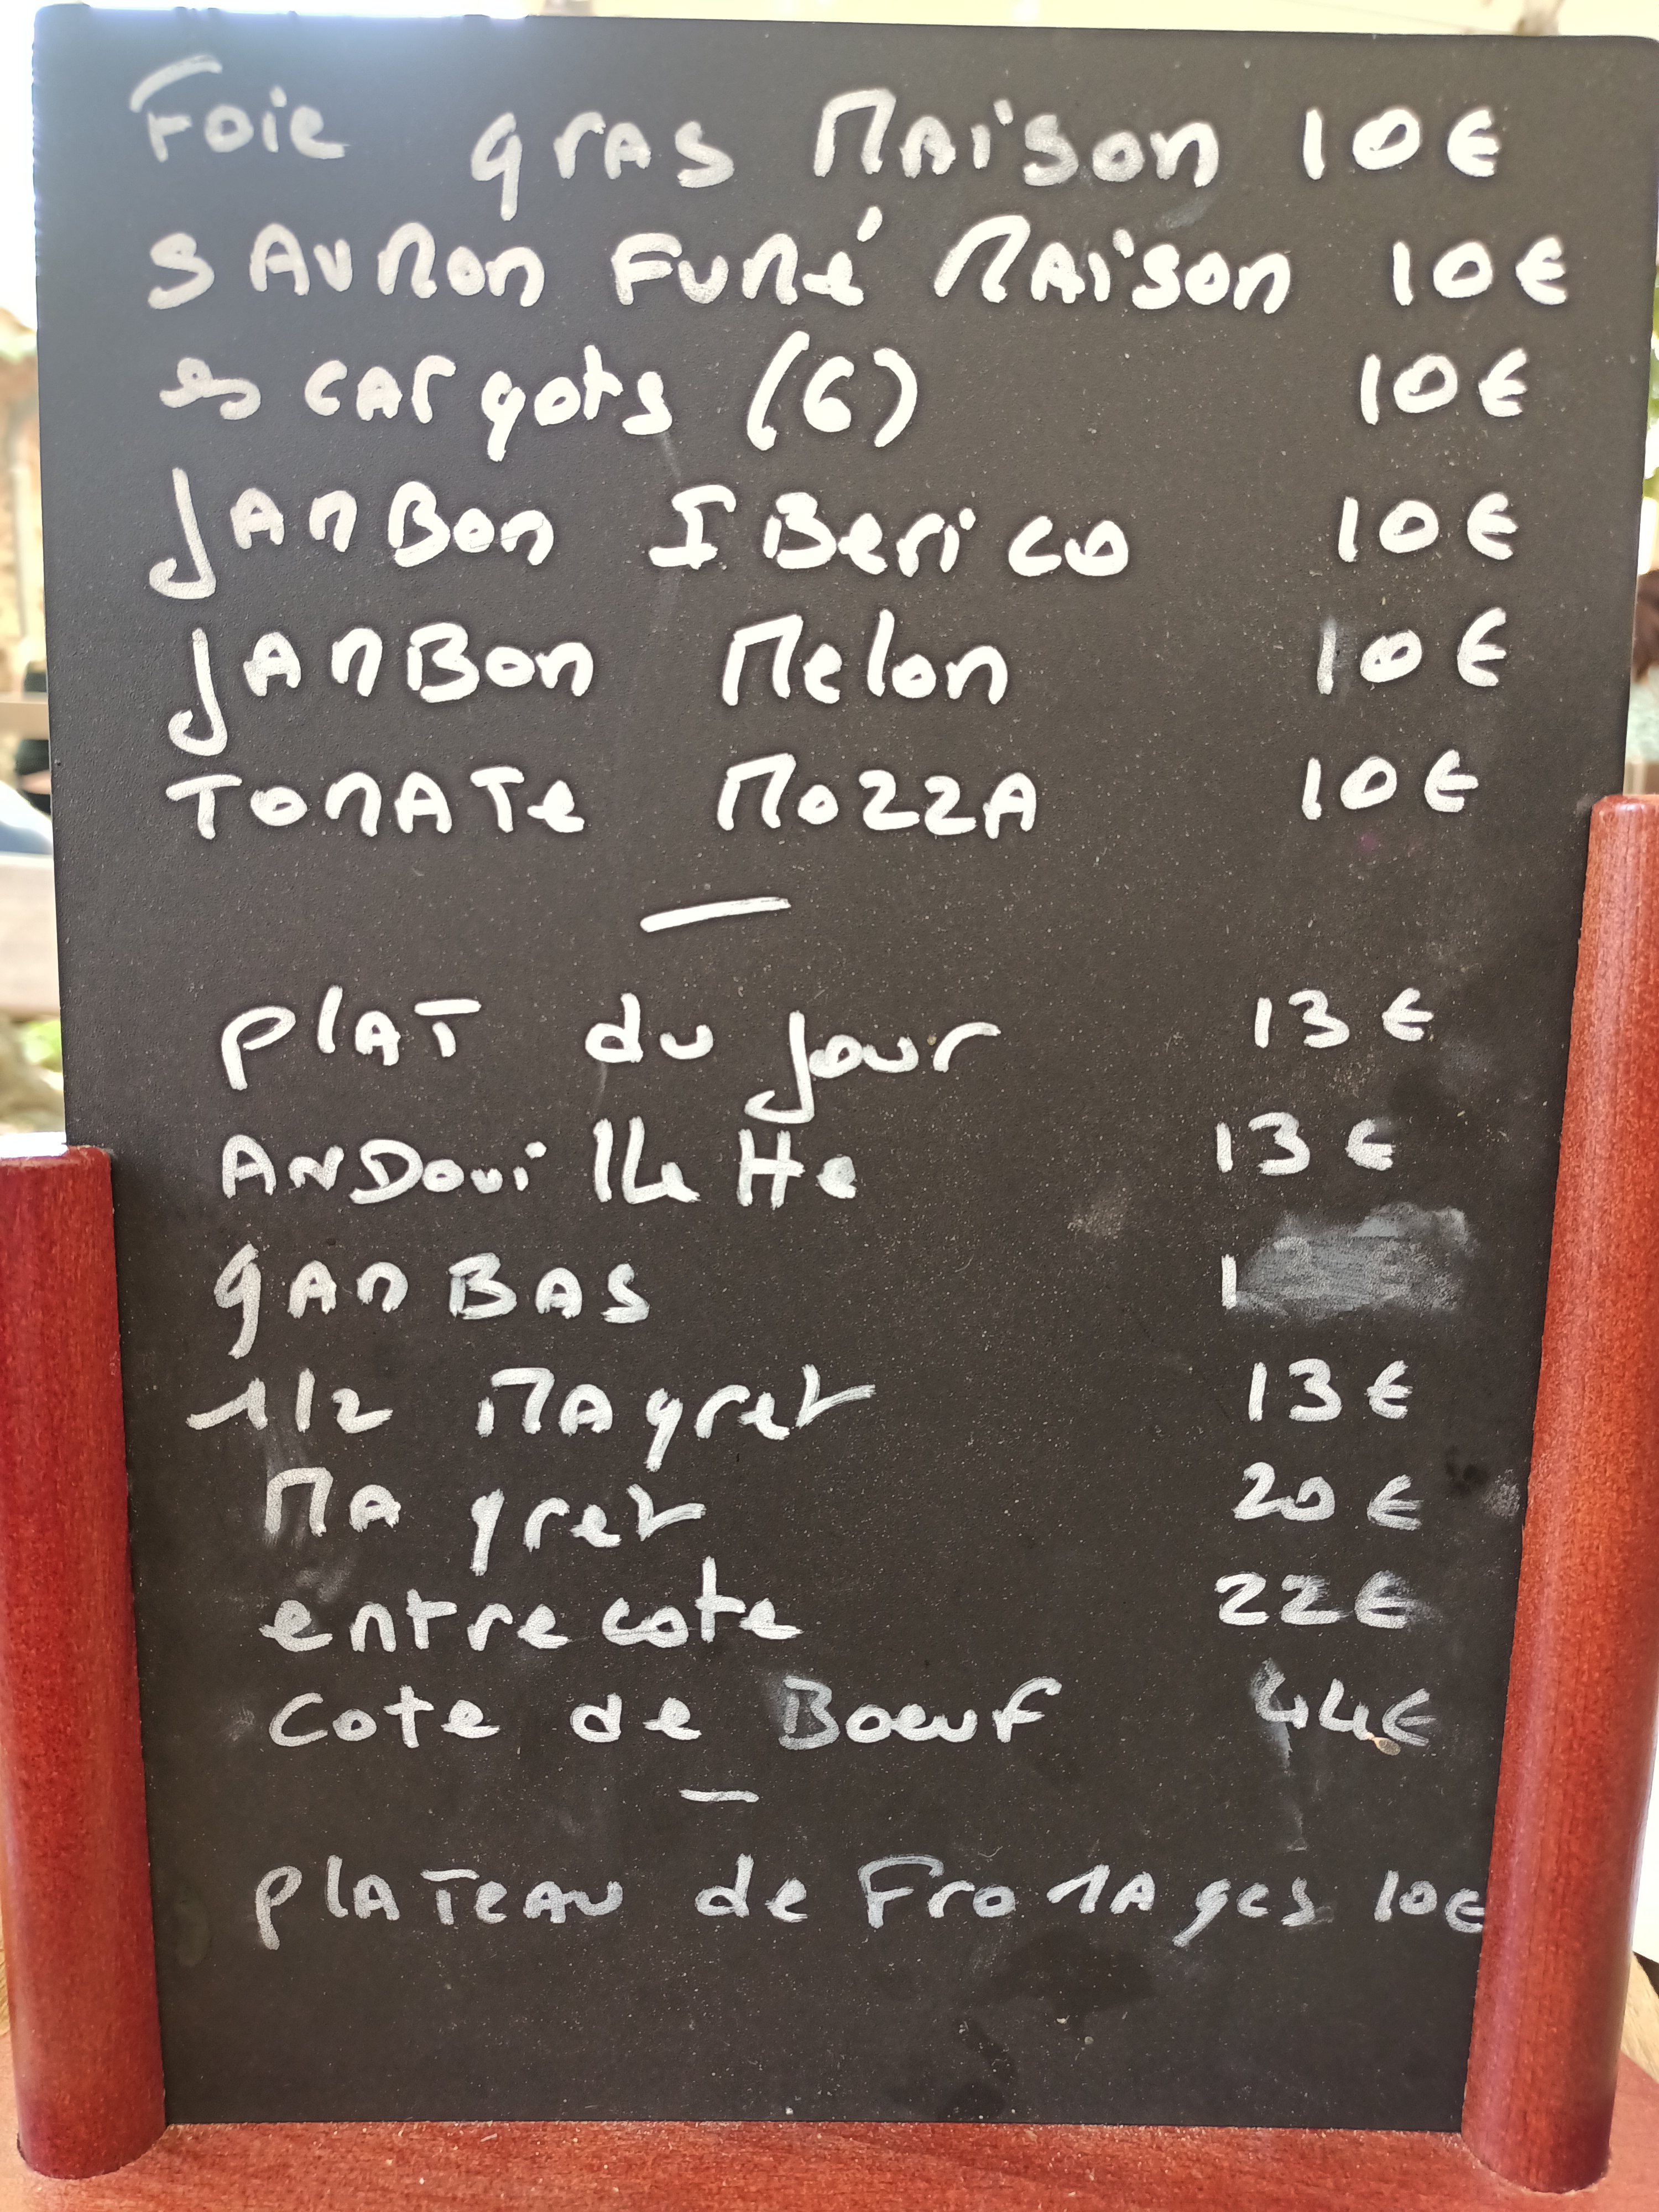 Foie gras Maison 10€
SAUMON FUMÉ MAISON 10€
escargots (6) 10€
JAMBON IBerico 10€
JAMBON Melon 10€
TOMATe MOZZA 10€
—
PLAT du jour 13€
ANDouilleTTe 13€
gAMBAS 1
1/2 MAgret 13€
MAgret 20€
entrecote 22€
Cote de Boeuf 44€
—
PLATEAU de FroMAges 10€